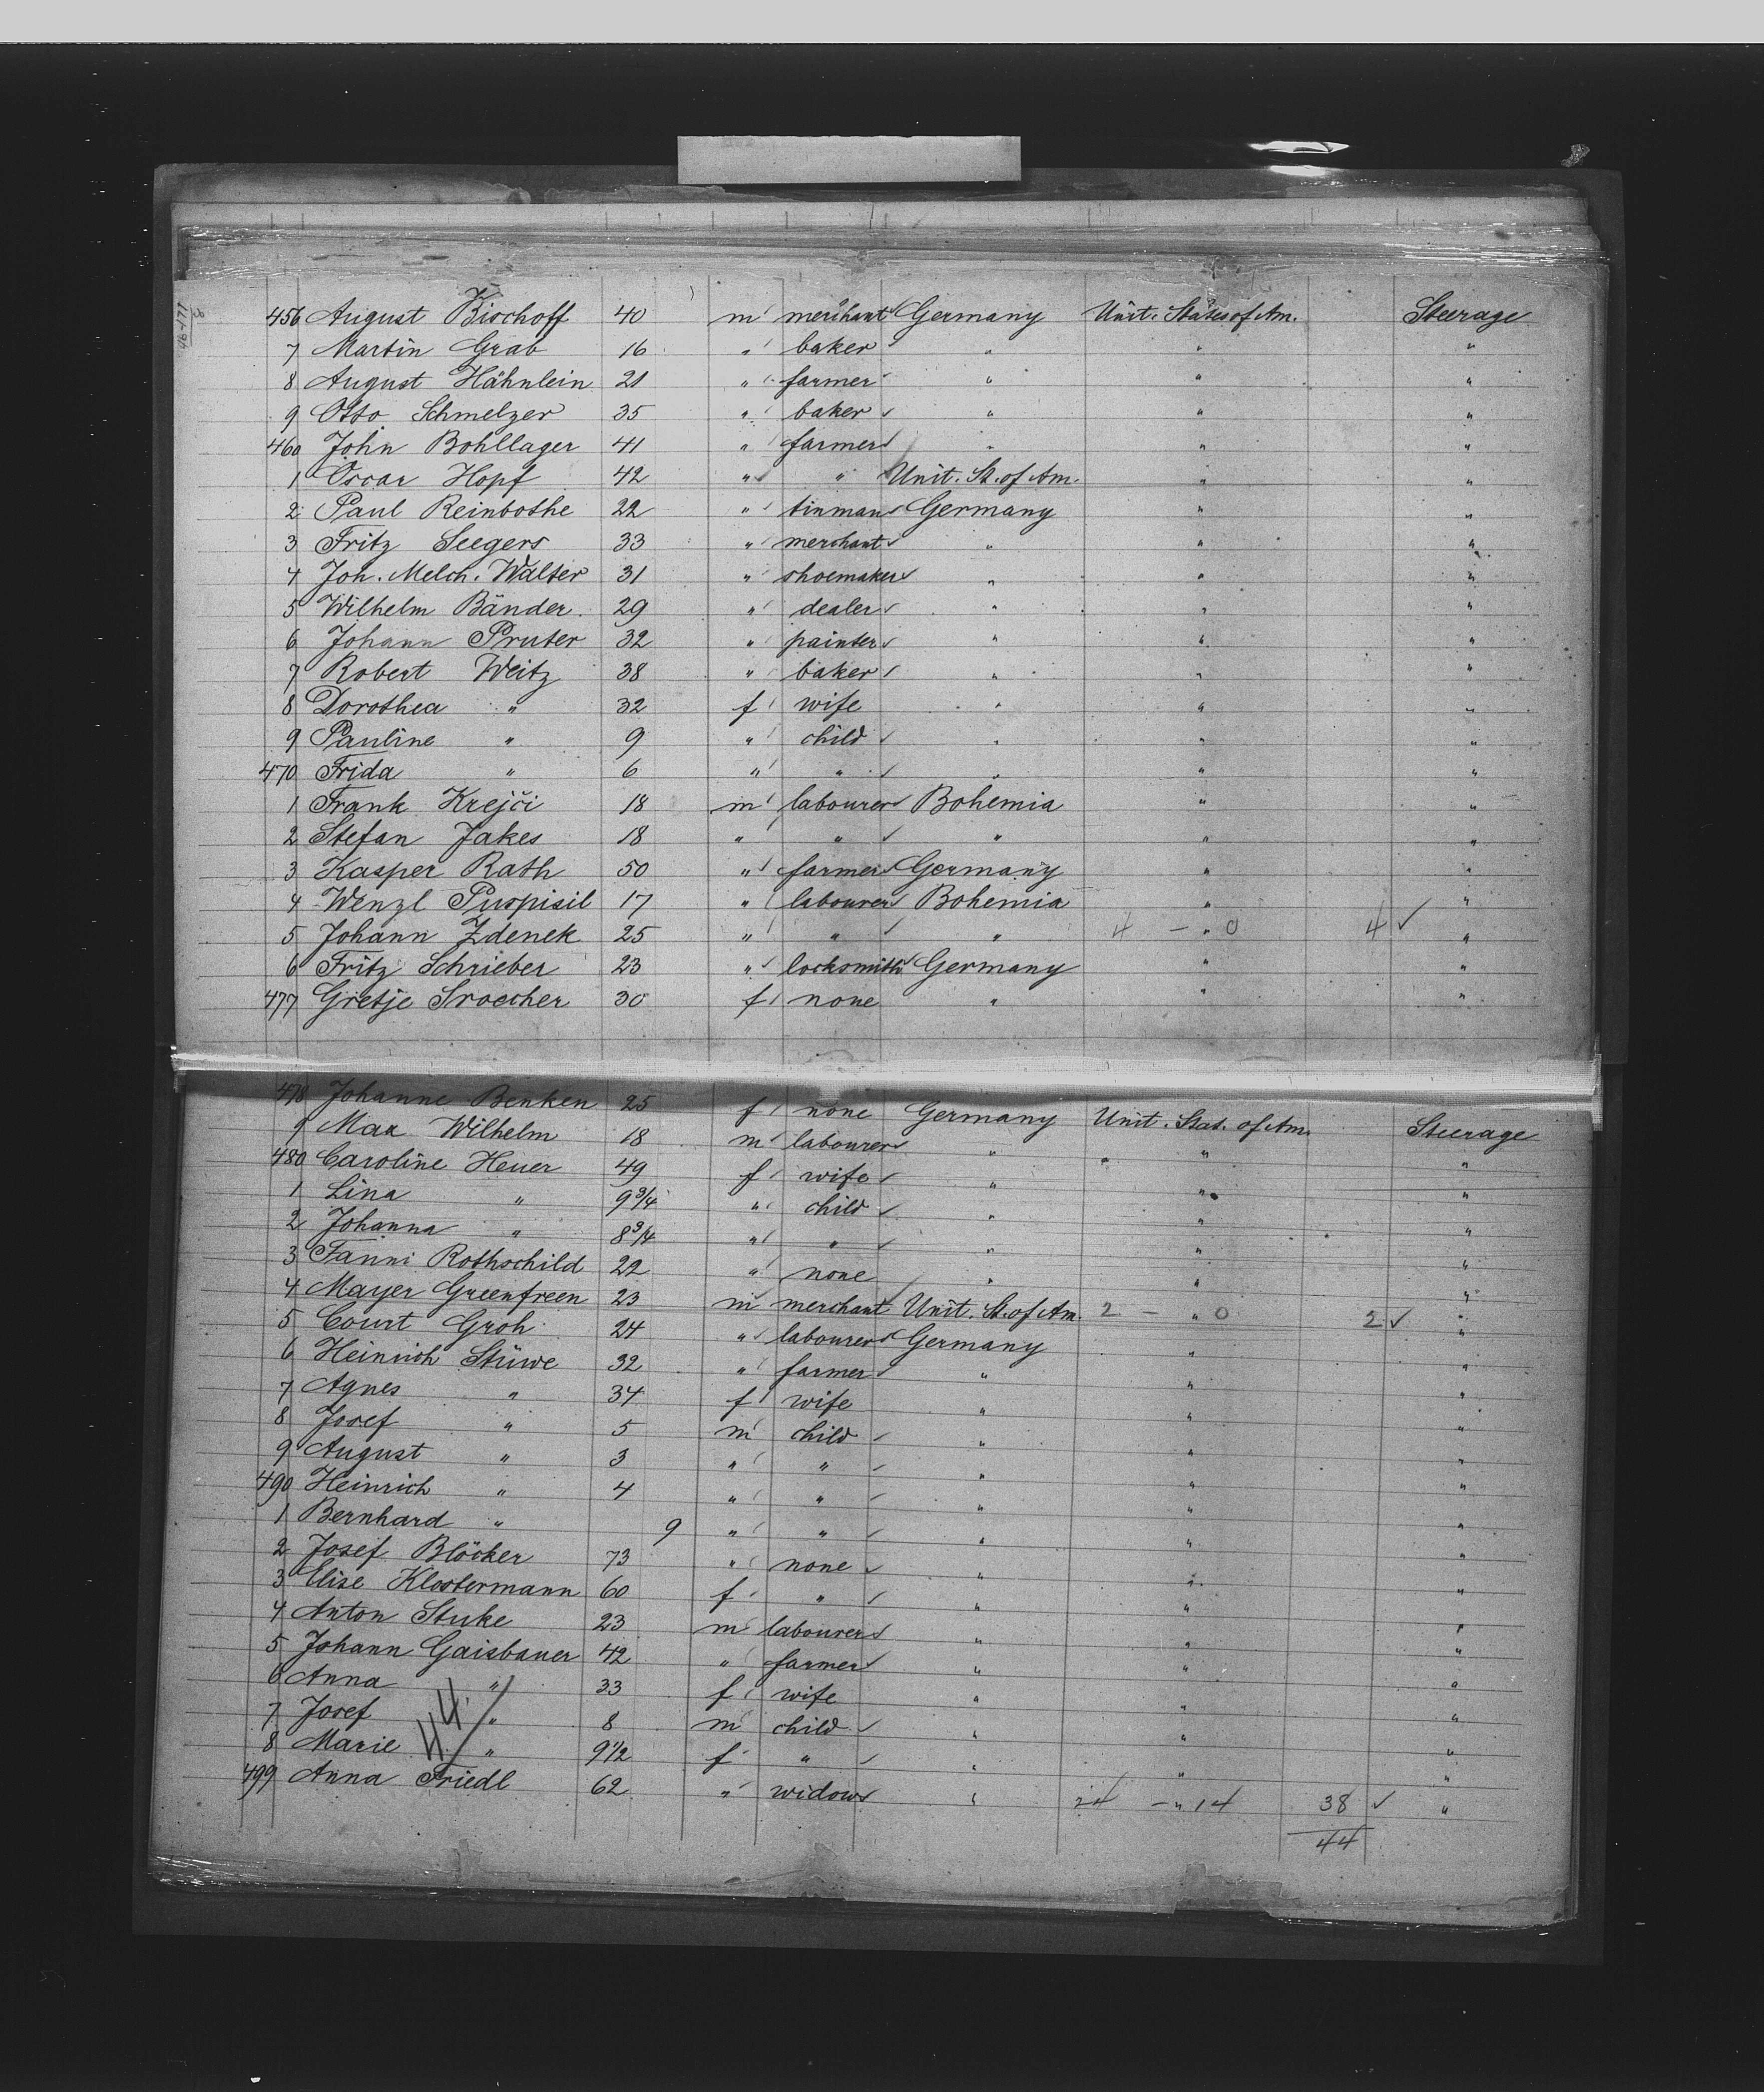 456 August Bischoff 40 m merchant Germany Unit. States of Am. Steerage
7 Martin Grab 16 " baker " " "
8 August Hähnlein 21 " farmer " " "
9 Otto Schmelzer 35 " baker " " "
460 John Bohllager 41 " farmer " " "
1 Oscar Hopf 42 " " Unit. St. of Am. " "
2 Paul Reinbothe 22 " tinman Germany " "
3 Fritz Seegers 33 " merchant " " "
4 Joh. Melch. Walter 31 " shoemaker " " "
5 Wilhelm Bänder 29 " dealer " " "
6 Johann Pruter 32 " painter " " "
7 Robert Weitz 38 " baker " " "
8 Dorothea " 32 f wife " " "
9 Pauline " 9 " child " " "
470 Frida " 6 " " " " "
1 Frank Krejči 18 m labourer Bohemia " "
2 Stefan Jakes 18 " " " " "
3 Kasper Rath 50 " farmer Germany " "
4 Wenzl Puspisil 17 " labourer Bohemia " "
5 Johann Zdenek 25 " " " 4 — " 0 4 ✓ "
6 Fritz Schrieber 23 " locksmith Germany " "
477 Gretje 30 f none " " "
478 Johanne Benken 25 f none Germany Unit. Stat. of Am. Steerage
9 Max Wilhelm 18 m labourer " " "
480 Caroline Heuer 49 f wife " " "
1 Lina " 9 3/4 " child " " "
2 Johanna " 8 3/4 " " " " "
3 Fanni Rothschild 22 " none " " "
4 Mayer Greenfreen 23 m merchant Unit. St. of Am. 2 — " 0 2 ✓ "
5 Court Groh 24 " labourer Germany " "
6 Heinrich Stüwe 32 " farmer " " "
7 Agnes " 34 f wife " " "
8 Josef " 5 m child " " "
9 August " 3 " " " " "
490 Heinrich " 4 " " " " "
1 Bernhard " 9 " " " " "
2 Josef Blöcker 73 " none " " "
3 Elise Klostermann 60 f " " " "
4 Anton Stuke 23 m labourer " " "
5 Johann Gaisbauer 42 " farmer " " "
6 Anna " 33 f wife " " "
7 Josef " 8 m child " " "
8 Marie " 9 1/2 f " " " "
44
499 Anna Friedl 62 " widow " 24 — " 14 38 ✓ "
44